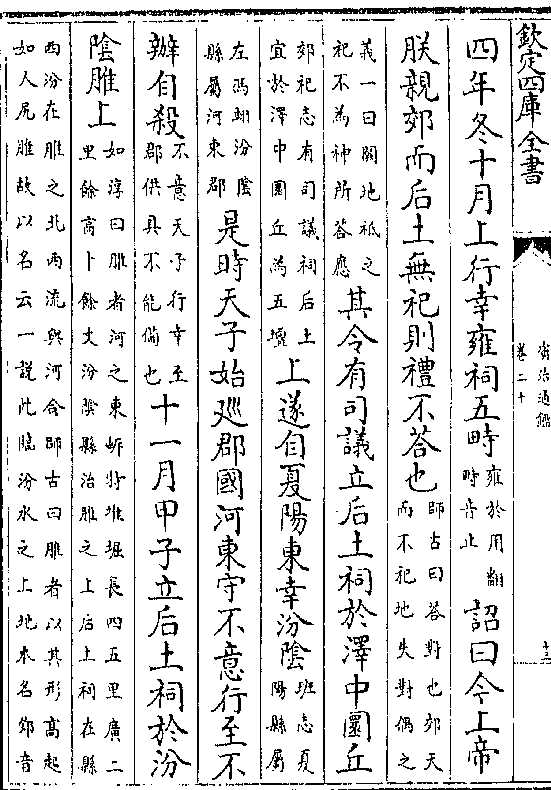 欽定四庫全書
資治通鑑
卷二十
十三
四年冬十月上行幸雍祠五畤雍於用翻畤音止詔曰今上帝
朕親郊而后土無祀則禮不答也師古曰答對也郊天而不祀地失對偶之
義一曰闕地祇之祀不為神所答應其令有司議立后土祠於澤中圜丘
郊祀志有司議祠后土宜於澤中圜丘為五壇上遂自夏陽東幸汾陰班志夏陽縣屬
左馮翊汾陰縣屬河東郡是時天子始廵郡國河東守不意行至不
辦自殺不意天子行幸至郡供具不能備也十一月甲子立后土祠於汾
陰脽上如淳曰脽者河之東岍特堆堀長四五里廣二里餘高十餘丈汾陰縣治脽之上后土祠在縣
西汾在脽之北西流與河合師古曰脽者以其形高起如人尻脽故以名云一說此臨汾水之上地本名鄈音